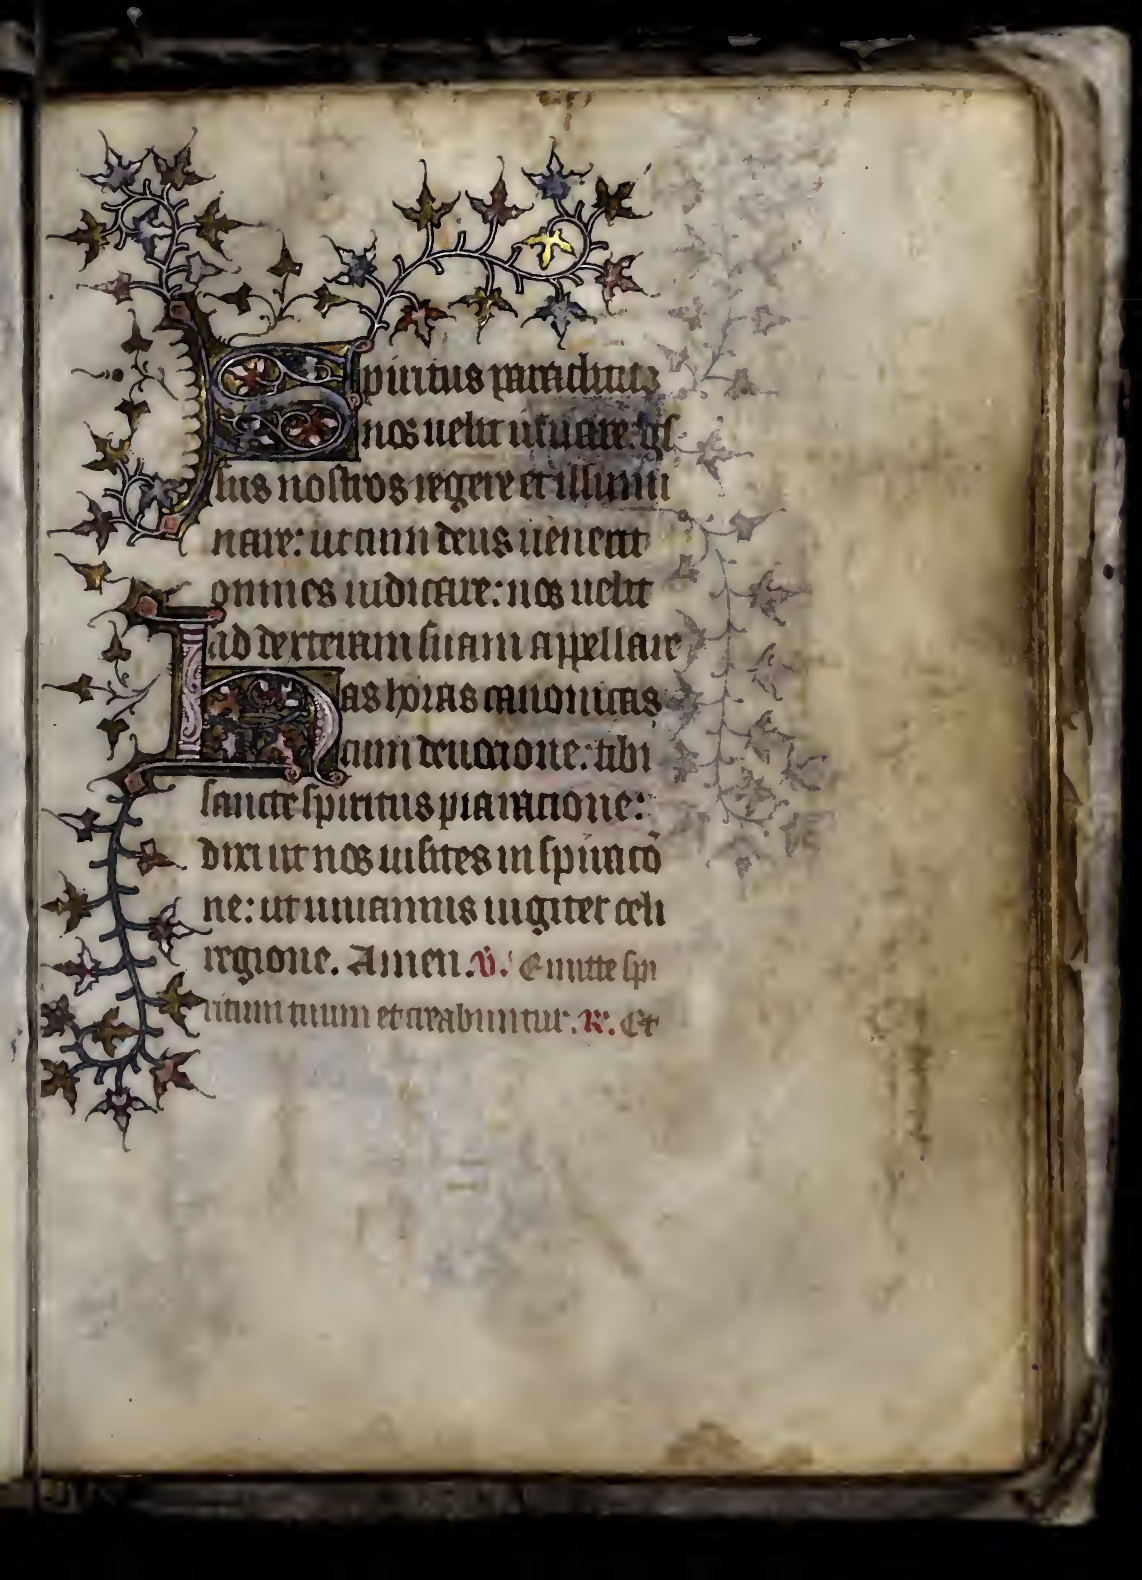 Spiritus paraclitus
nos uelit uisitare: gres
sus nostros regere et illumi
nare: ut cum deus uenerit
omnes iudicare: nos uelit
ad dexteram suam appellare
Has horas canonicas
cum deuocione: tibi
sancte spiritus pia racione:
dixi ut nos uisites inspiracio
ne: ut uiuamus iugiter celi
regione. Amen. V. Emitte spi
ritum tuum et creabuntur. R. Et